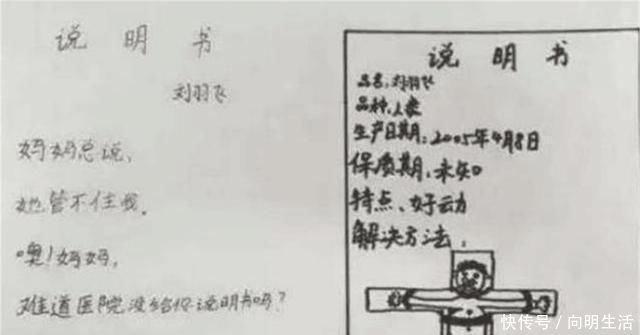 说 明 书
刘羽飞
妈妈总说，
她管不住我。
噢！妈妈，
难道医院没给你说明书吗？
说 明 书
品名：刘羽飞
品种：人类
生产日期：2005年4月8日
保质期：未知
特点：好动
解决方法：
快传号／向明生活